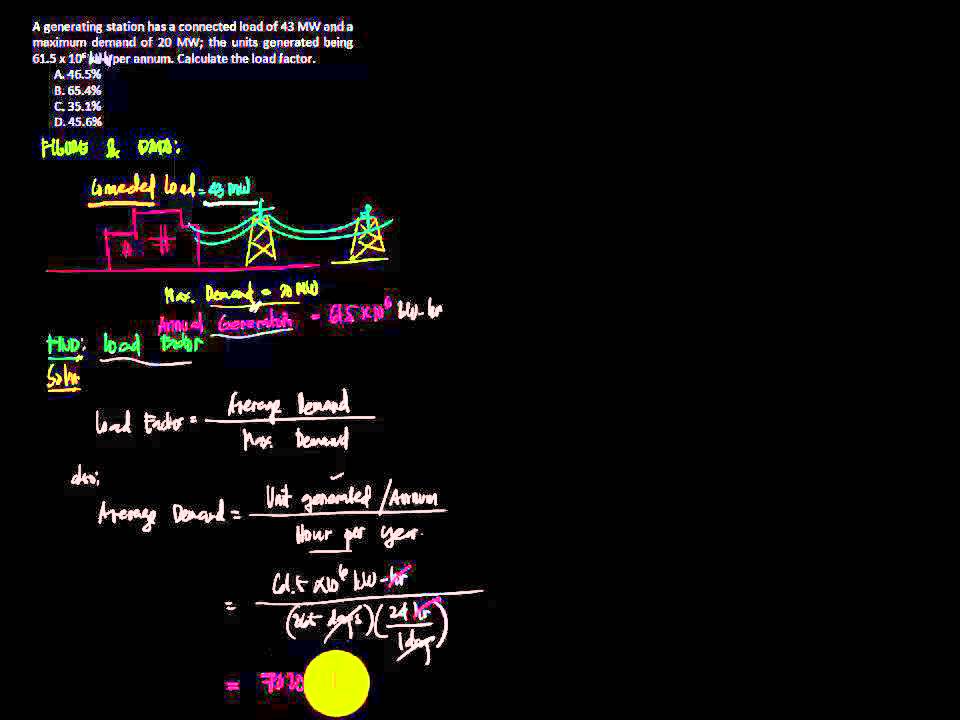 A generating station has a connected load of 43 MW and a
maximum demand of 20 MW; the units generated being
61.5 x 10⁶ per annum. Calculate the load factor.
A. 46.5%
B. 65.4%
C. 35.1%
D. 45.6%
FIGURE & DATA:
Connected Load = 43 MW
Max. Demand = 20 MW
Annual Generation = 61.5 x10⁶ kW-hr
FIND: Load Factor
Sol'n
Load Factor = Average Demand
Max. Demand
also;
Average Demand = Unit generated / Annum
Hour per year.
= 61.5 x10⁶ kW-hr
(365 days)(24 hr
1day)
= 7020